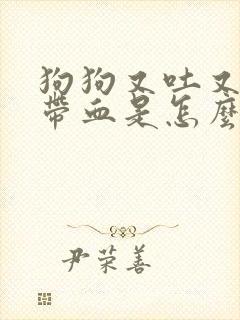 狗狗又吐又
帶血是怎麼
尹荣善